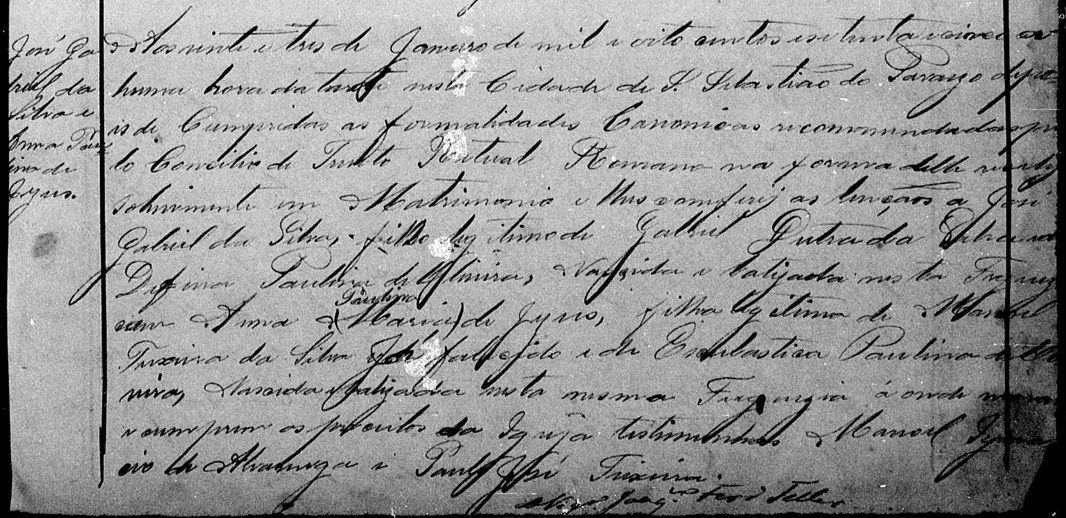 José Ga
briel da
Silva e
Anna Pau
lina de
Jesus.
Aos vinte e tres de Janeiro de mil e oito centos e setenta e cinco a
huma hora da tarde nesta Cidade de S. Sebastião do Paraizo depo
is de Cumpridas as formalidades Canonicas recommendadas pe
lo Concilio de Trento Ritual Romano na forma delle recebi
solennemente em Matrimonio e lhes conferij as bençãos a José
Gabriel da Silva, filho legitimo de Gabriel Dutra da Silva e
Paulina de Oliveira, Nascido e batizado nesta Fregue
com Anna Paulina (Maria) de Jesus, filha legitima de Manoel
Teixeira da Silva já fallecido e de Escolastica Paulina de Oli
veira, Nascida e batizada nesta mesma Freguezia á onde morão
e cumprem os preceitos da Igreja testimunhas Manoel Igna
cio de Alvarenga e Paulo José Teixeira.
Ferª Telles